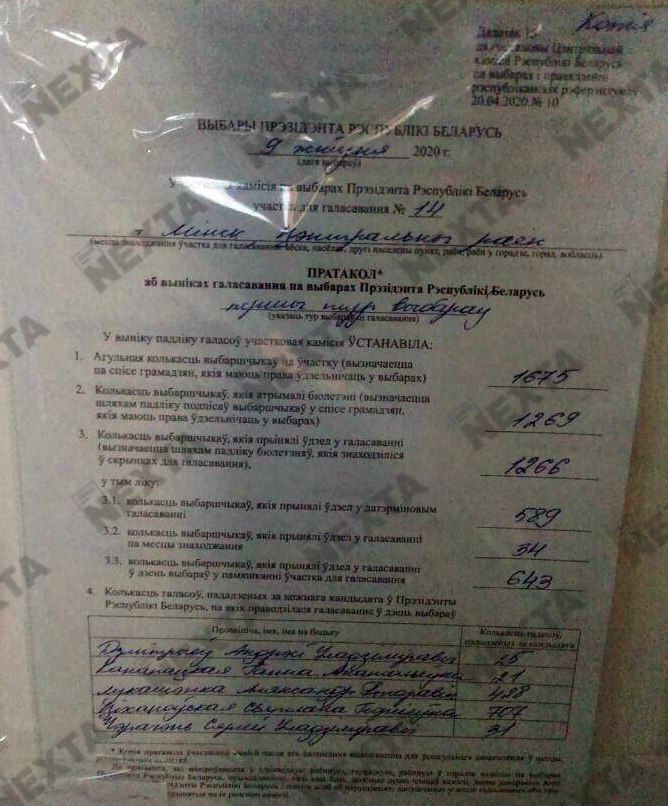 Копія
Дадатак 13
да пастановы Цэнтральнай
камісіі Рэспублікі Беларусь
па выбарах і правядзенні
рэспубліканскіх рэферэндумаў
20.04.2020 № 10
ВЫБАРЫ ПРЭЗІДЭНТА РЭСПУБЛІКІ БЕЛАРУСЬ
9 жніўня 2020 г.
(дата выбараў)
Участковая камісія па выбарах Прэзідэнта Рэспублікі Беларусь
участка для галасавання № 14
г. Мінск Цэнтральны раён
(месца знаходжання ўчастка для галасавання: вёска, пасёлак, другі населены пункт, раён, раён у горадзе, горад, вобласць)
ПРАТАКОЛ*
аб выніках галасавання на выбарах Прэзідэнта Рэспублікі Беларусь
першы тур выбараў
(указаць тур выбараў галасавання)
У выніку падліку галасоў участковая камісія ЎСТАНАВІЛА:
1. Агульная колькасць выбаршчыкаў на ўчастку (вызначаецца
па спісе грамадзян, якія маюць права ўдзельнічаць у выбарах) 1675
2. Колькасць выбаршчыкаў, якія атрымалі бюлетэні (вызначаецца
шляхам падліку подпісаў выбаршчыкаў у спісе грамадзян,
якія маюць права ўдзельнічаць у выбарах) 1269
3. Колькасць выбаршчыкаў, якія прынялі ўдзел у галасаванні
(вызначаецца шляхам падліку бюлетэняў, якія знаходзіліся
ў скрынках для галасавання), 1266
у тым ліку:
3.1. колькасць выбаршчыкаў, якія прынялі ўдзел у датэрміновым
галасаванні 589
3.2. колькасць выбаршчыкаў, якія прынялі ўдзел у галасаванні
па месцы знаходжання 34
3.3. колькасць выбаршчыкаў, якія прынялі ўдзел у галасаванні
ў дзень выбараў у памяшканні ўчастка для галасавання 643
4. Колькасць галасоў, пададзеных за кожнага кандыдата ў Прэзідэнты
Рэспублікі Беларусь, па якіх праводзілася галасаванне ў дзень выбараў
Прозвішча, імя, імя па бацьку Колькасць галасоў,
пададзеных за кандыдата
Дзмітрыеў Андрэй Уладзіміравіч 25
Канапацкая Ганна Анатольеўна 21
Лукашэнка Аляксандр Рыгоравіч 428
Ціханоўская Святлана Георгіеўна 707
Чэрачэнь Сяргей Уладзіміравіч 31
NEXTA